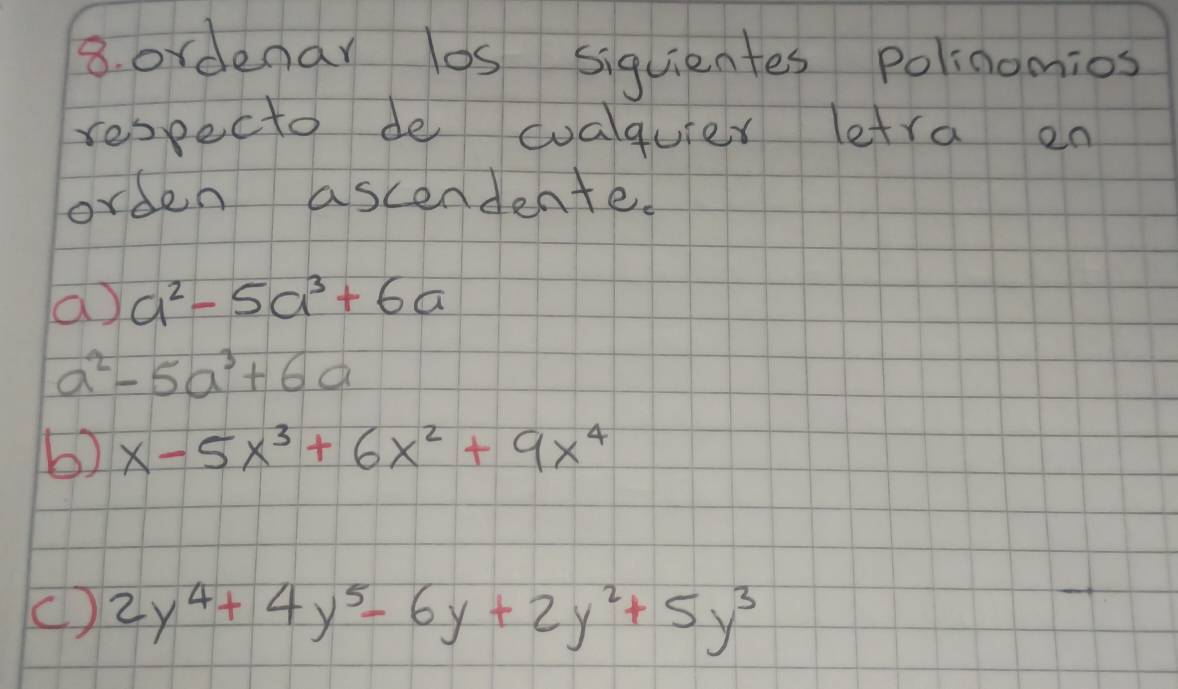 8. ordenar los siguientes Polinomios
respecto de cualquier letra en
orden ascendente.
a) a² - 5a³ + 6a
a² - 5a³ + 6a
b) x - 5x³ + 6x² + 9x⁴
c) 2y⁴ + 4y⁵ - 6y + 2y² + 5y³